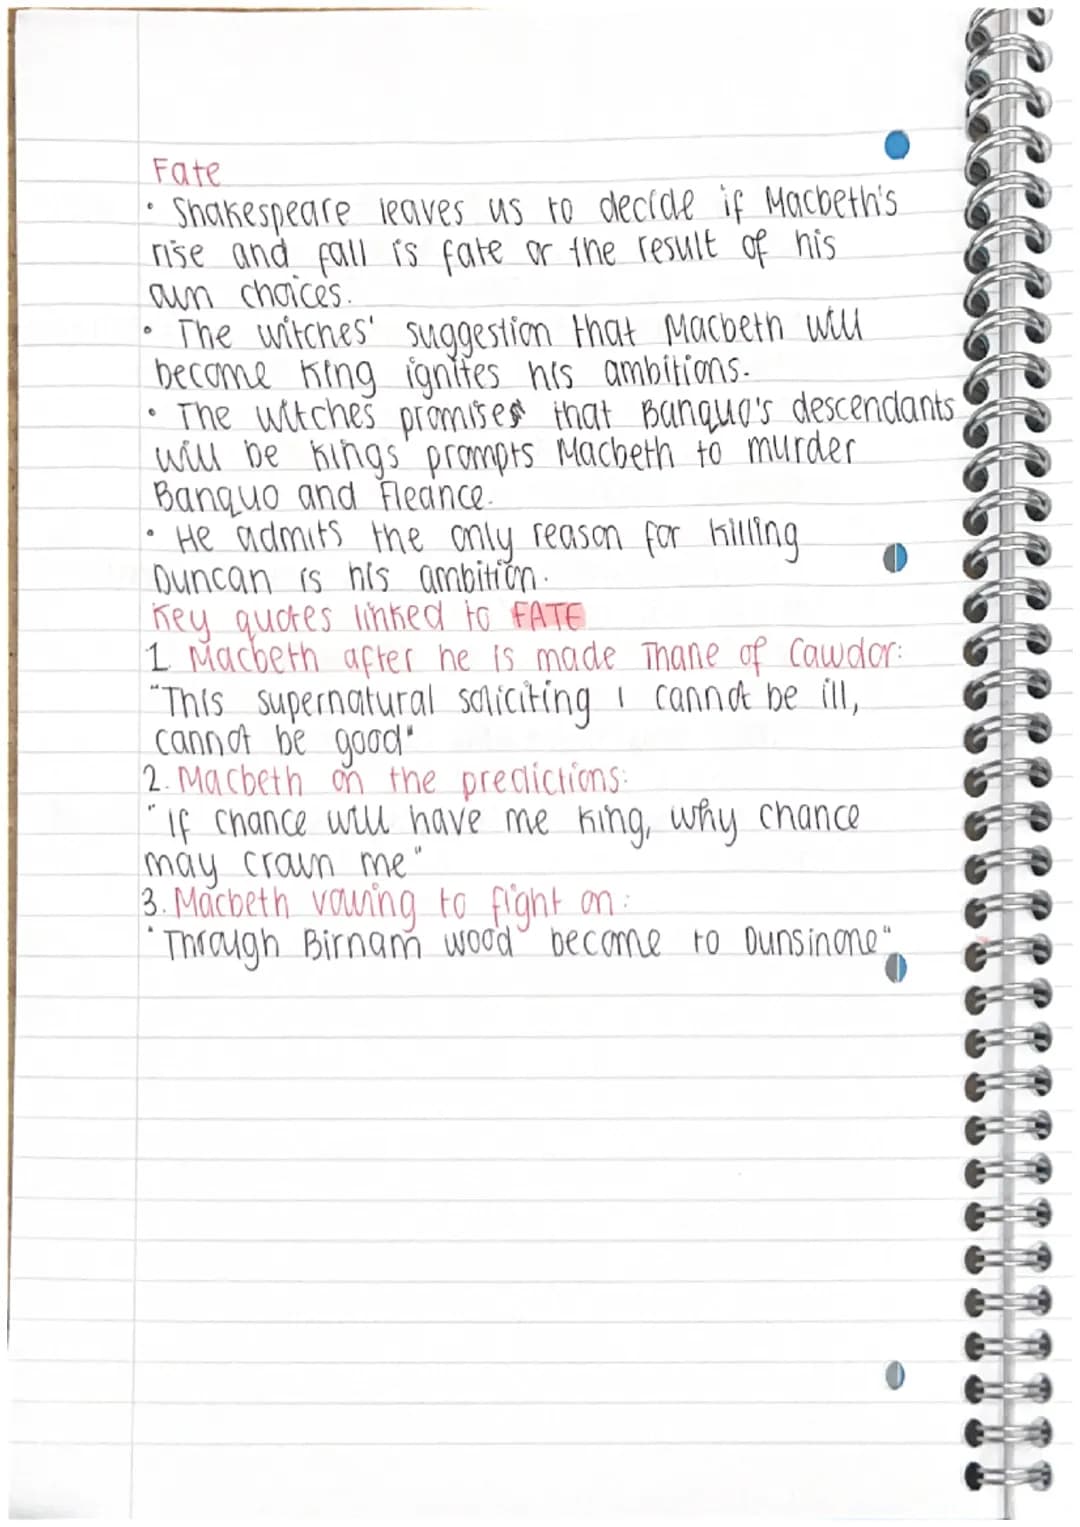 Fate
• Shakespeare leaves us to decide if Macbeth's
rise and fall is fate or the result of his
own choices.
• The witches' suggestion that Macbeth will
become King ignites his ambitions.
• The witches promises that Banquo's descendants
will be kings' prompts Macbeth to murder
Banquo and Fleance.
• He admits the only reason for killing
Duncan is his ambition.
Key quotes linked to FATE
1. Macbeth after he is made Thane of Cawdor:
"This supernatural soliciting I cannot be ill,
cannot be good"
2. Macbeth on the predictions:
"If chance will have me King, why chance
may crown me"
3. Macbeth vowing to fight on:
"Through Birnam wood become to Dunsinone"